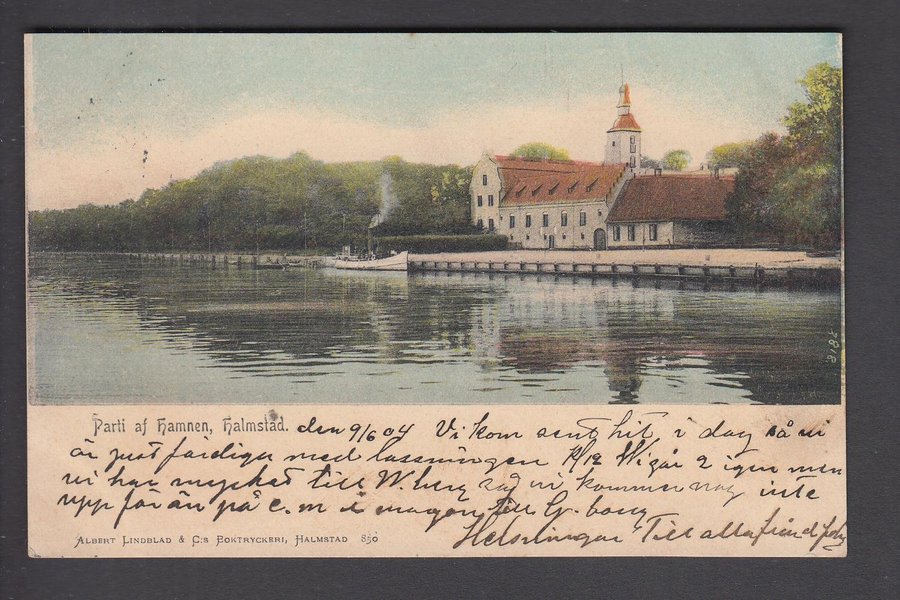 Parti af Hamnen, Halmstad. den 9/6 04 Vi kom sent hit i dag så vi
är just färdiga med lassningen Vi går 2 igen men
vi har mycket till W.berg så vi kommer nog inte
upp för än på e.m i morgon till G.borg
Helsningar Till alla från
Albert Lindblad & C:s Boktryckeri, Halmstad 850